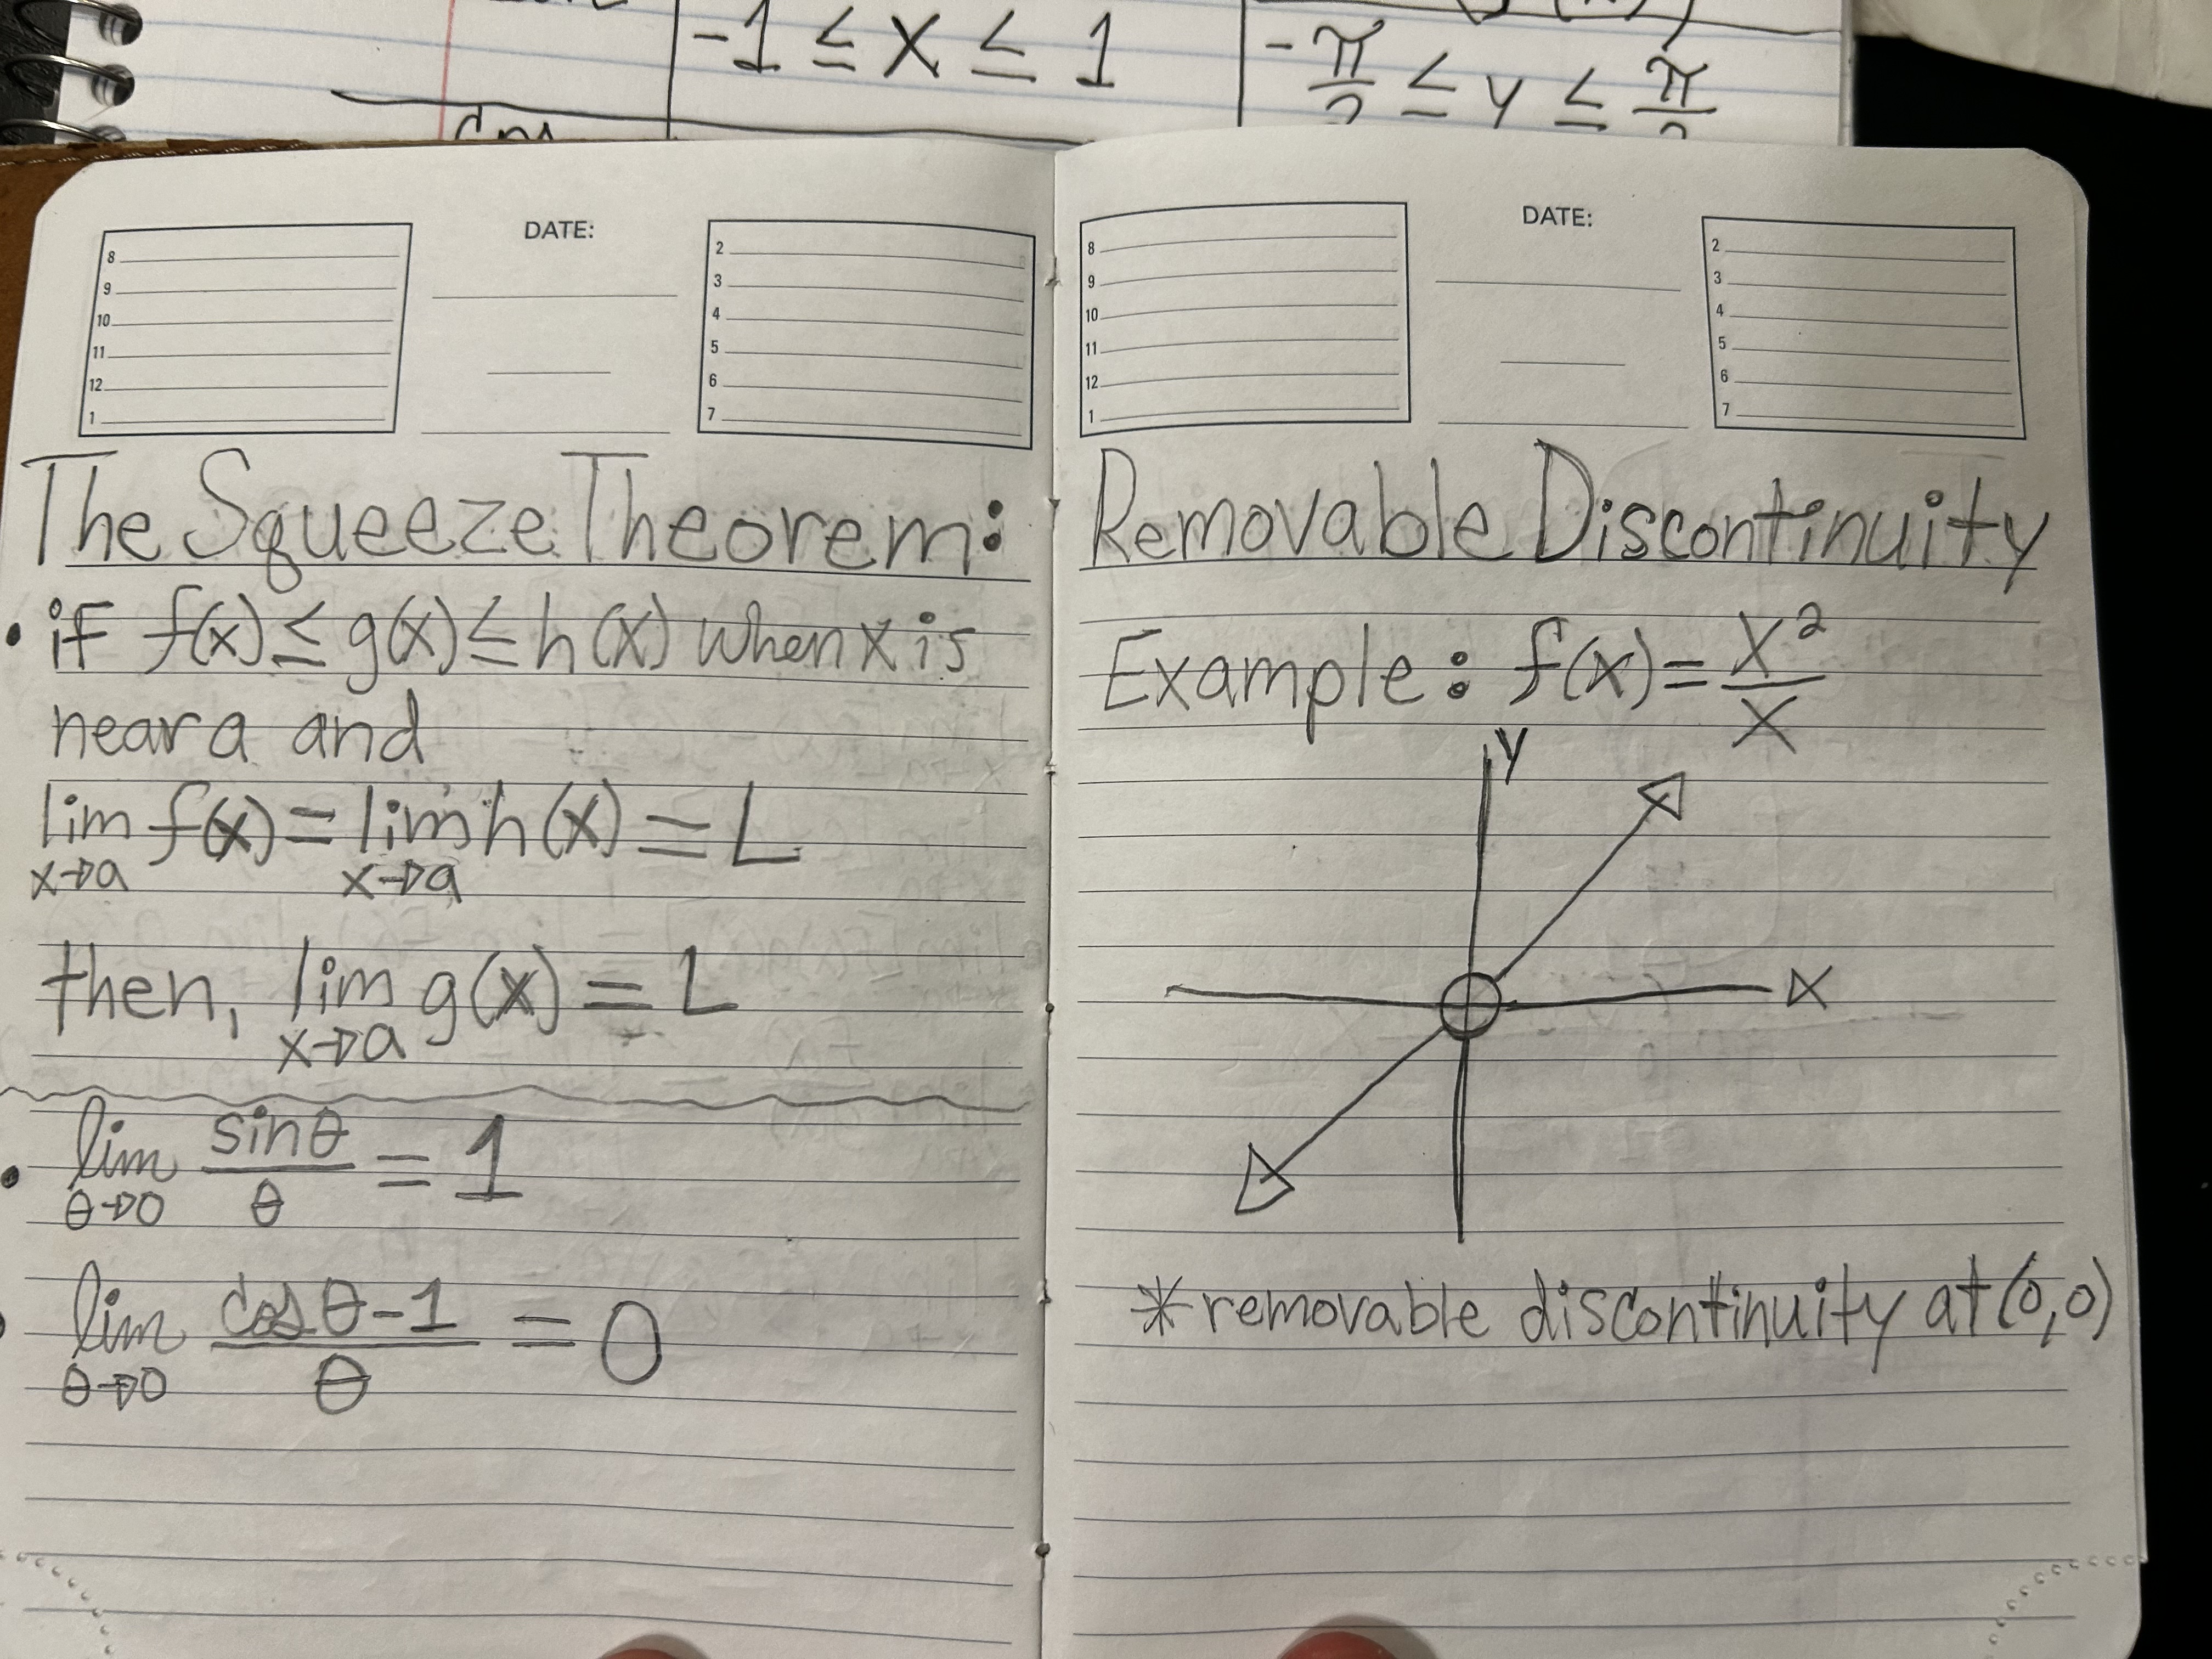 DATE:
8
9
10
11
12
1
2
3
4
5
6
7
The Squeeze Theorem:
• if f(x) ≤ g(x) ≤ h(x) when x is
near a and
lim f(x) = lim h(x) = L
x→a x→a
then, lim g(x) = L
x→a
• lim sinθ = 1
θ→0 θ
• lim cosθ-1 = 0
θ→0 θ
DATE:
8
9
10
11
12
1
2
3
4
5
6
7
Removable Discontinuity
Example: f(x) = x²
x
y
x
*removable discontinuity at (0,0)
-1 ≤ x ≤ 1
≤ y ≤